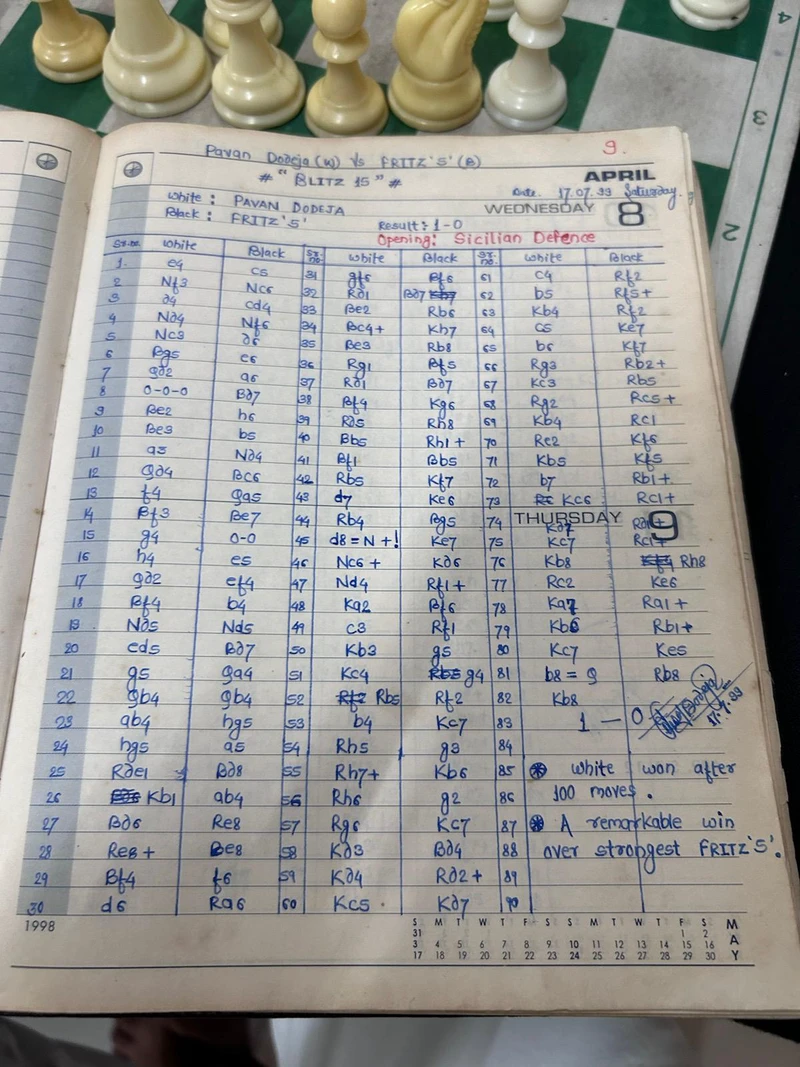 9.
Pavan Dodeja (W) Vs FRITZ '5' (B)
# "BLITZ 15" #
APRIL
Date. 17.07.99 Saturday.
White : PAVAN DODEJA
WEDNESDAY 8
Black : FRITZ '5'
Result :- 1-0
Opening: Sicilian Defence
Sr.no. White Black Sr. no. White Black Sr. no. White Black
1. e4 c5 31 gf6 Bf6 61 c4 Rf2
2 Nf3 Nc6 32 Rd1 Bd7 62 b5 Rf5+
3 d4 cd4 33 Be2 Rb6 63 Kb4 Rf2
4 Nd4 Nf6 34 Bc4+ Kh7 64 c5 Ke7
5 Nc3 d6 35 Be3 Rb8 65 b6 Kf7
6 Bg5 e6 36 Rg1 Bf5 66 Rg3 Rb2+
7 Qd2 a6 37 Rd1 Bd7 67 Kc3 Rb5
8 0-0-0 Bd7 38 Bf4 Kg6 68 Rg2 Rc5+
9 Be2 h6 39 Rd5 Rh8 69 Kb4 Rc1
10 Be3 b5 40 Bb5 Rh1+ 70 Re2 Kf6
11 a3 Nd4 41 Bf1 Bb5 71 Kb5 Kf5
12 Qd4 Bc6 42 Rb5 Kf7 72 b7 Rb1+
13 f4 Qa5 43 d7 Ke6 73 Kc6 Rc1+
14 Bf3 Be7 44 Rb4 Bg5 74 Kd7 Rd1+
THURSDAY 9
15 g4 0-0 45 d8=N+! Ke7 75 Kc7 Rc1+
16 h4 e5 46 Nc6+ Kd6 76 Kb8 Rh8
17 Qd2 ef4 47 Nd4 Rf1+ 77 Rc2 Ke6
18 Bf4 b4 48 Ka2 Bf6 78 Ka7 Ra1+
19 Nd5 Nd5 49 c3 Rf1 79 Kb6 Rb1+
20 ed5 Bd7 50 Kb3 g5 80 Kc7 Ke5
21 g5 Qa4 51 Kc4 g4 81 b8=Q Rb8
22 Qb4 Qb4 52 Rb5 Rf2 82 Kb8
23 ab4 hg5 53 b4 Kc7 83 1 — 0 17.7.99
24 hg5 a5 54 Rh5 g3 84
25 Rde1 Bd8 55 Rh7+ Kb6 85 * White won after
26 Kb1 ab4 56 Rh6 g2 86 100 moves.
27 Bd6 Re8 57 Rg6 Kc7 87 * A remarkable win
28 Re8+ Be8 58 Kd3 Bd4 88 over strongest FRITZ '5'.
29 Bf4 f6 59 Kd4 Rd2+ 89
30 d6 Ra6 60 Kc5 . Kd7 90
1998
S M T W T F S S M T W T F S
31 1 2
3 4 5 6 7 8 9 10 11 12 13 14 15 16
17 18 19 20 21 22 23 24 25 26 27 28 29 30
MAY
4
3
2